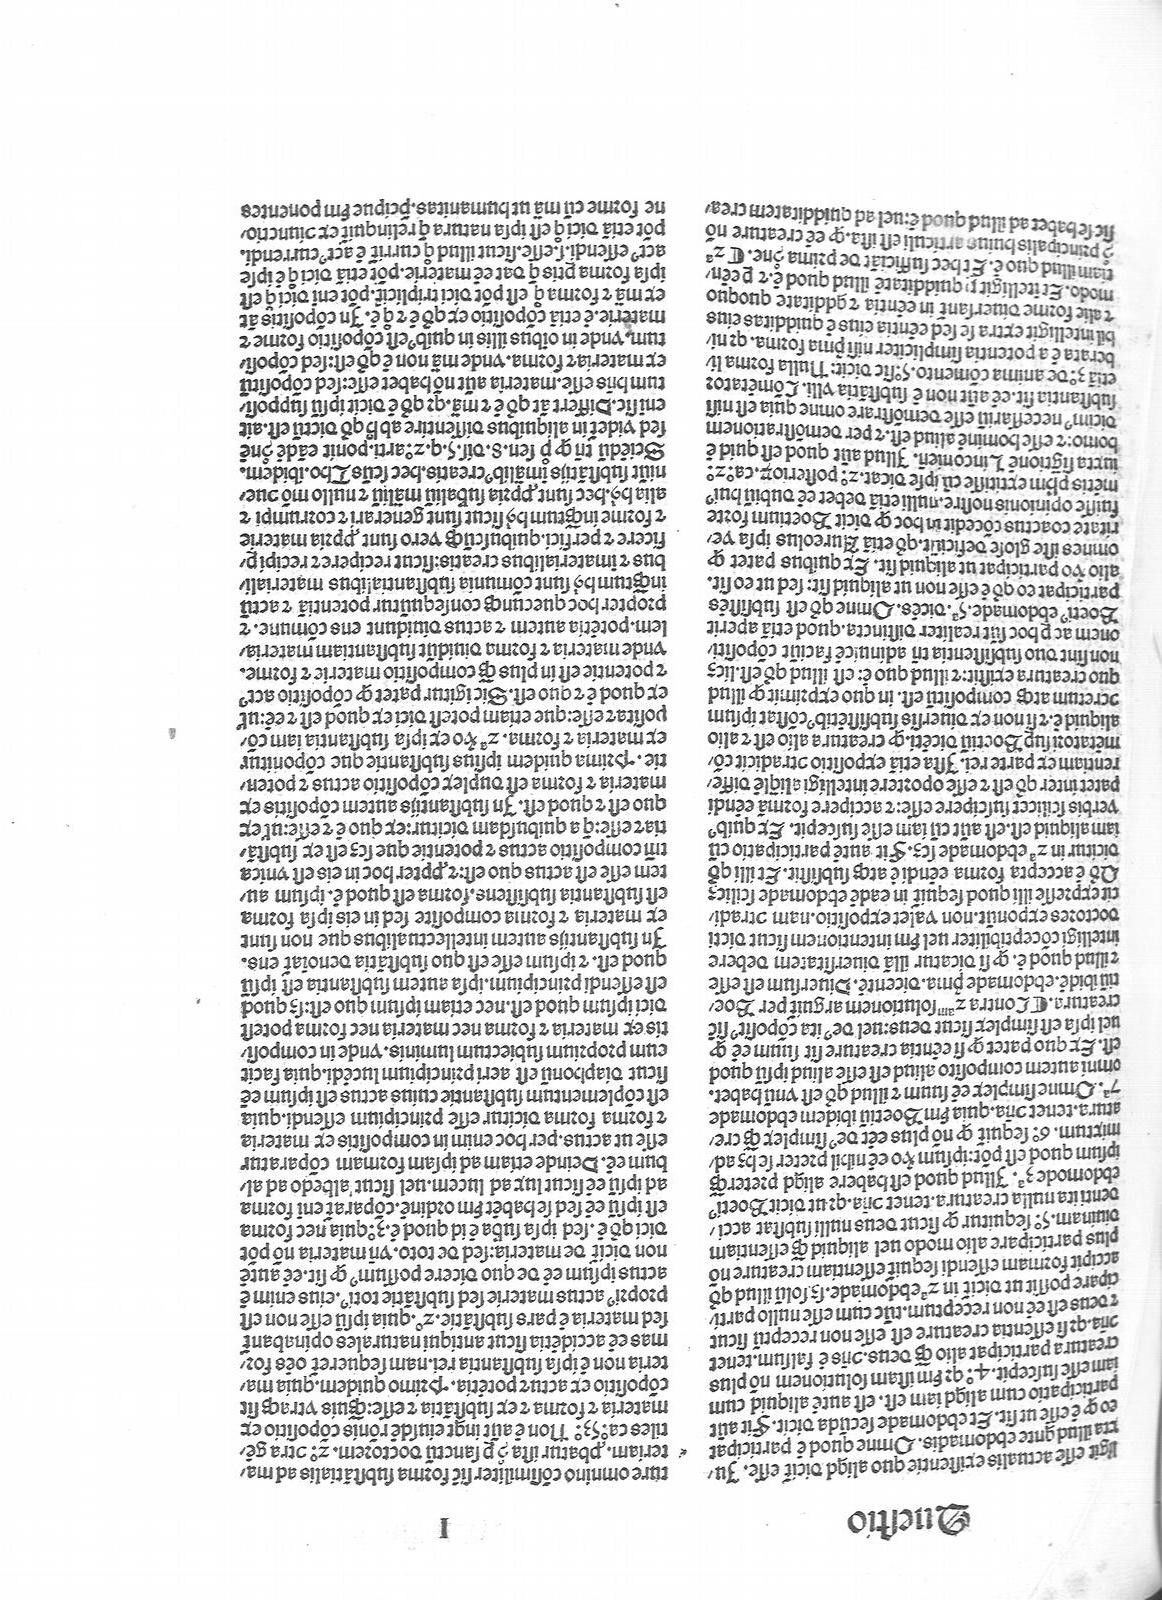 Questio
I
ligit esse actualis existentie quo aliqd dicit̃ esse. Ju-
xta illud qñte ebdomadis. Omne quod ẽ participat
eo ꝙ ẽ esse ut sit. Et ebdomade secũda dicit. Fit aũt
participatio cum aliqd iam est. est aũtẽ aliquid cum
iam esse suscepit. 4.º qꝛ fm istam solutionem nõ plus
creatura participat alio ꝙ̃ deus. ɔñs ẽ falsum. tenet
ɔña. qꝛ si essentia creature est esse non receptũ sicut
⁊ deus est eẽ non receptum. tũc cum esse nullo parti-
cipare possit ut dicit̃ in 2ª ebdomade. sꝫ solũ illud qð
accipit formam essendi sequit̃ essentiam creature nõ
plus participare alio modo uel aliquid ꝙ̃ essentiam
diuinam. 5.º sequitur ꝙ sicut deus nulli subsistat acci-
denti ita nulla creatura. tenet ɔña. qꝛ ut dicit Boetiꝰ
ebdomode 3ª. Illud quod est habere aliqd preterꝙ̃
ipsum quod est põt: ipsum ꝟo eẽ nihil preter se hꝫ ad-
mixtum. 6.º sequit̃ ꝙ nõ plus eẽt deꝰ simplex ꝙ̃ cre-
atura. tenet ɔña. quia fm Boetiũ ibidem ebdomade
7ª. Omne simplex eẽ suum ⁊ illud qð est vnũ habet.
omni autem composito aliud est esse aliud ipsũ quod
est. Ex quo patet ꝙ si eẽntia creature sit suum eẽ ꝙ
uel ipsa est simplex sicut deus: uel deꝰ ita cõpositꝰ sic̃
creatura. ⸿ Contra 2ªᵐ solutionem arguit̃ per Boe-
tiũ ibidẽ. ebdomade pña. dicentẽ. Diuersum est esse
⁊ illud quod ẽ. ꝙ si dicatur illã diuersitatem debere
intelligi cõceptibiliter uel fm intentionem sicut dicti
doctores exponũt. non valet expositio. nam ɔtradi-
cit expresse illi quod sequit̃ in eadẽ ebdomade scilicꝫ
Qð ẽ accepta forma eẽndi ẽ atqꝫ subsistit. Et illi qð
dicitur in 2ª ebdomade scꝫ. Fit autẽ participatio cũ
iam aliquid est. est aũt cũ iam esse suscepit. Ex quibꝰ
verbis scilicet suscipere esse: ⁊ accipere formã eẽndi
patet inter qð est ⁊ esse oportere intelligi aliq̃lẽ diffe-
rentiam ex parte rei. Ista etiã expositio ɔtradicit cõ-
mẽtatori suꝑ Boetiũ dicẽti. ꝙ creatura alio est ⁊ alio
aliquid ẽ. ⁊ si non ex diuersis subsistẽtibꝰ cõstat ipsum
ɔcretum atqꝫ compositũ est. in quo exprimit̃ ꝙ illud
quo creatura existit: ⁊ illud quo ẽ: est illud qð est. licꝫ
non sint duo subsistentia tñ adinuicẽ faciũt cõpositi-
onem ac ꝑ hoc sũt realiter distincta. quod etiã aperit
Boetiꝰ ebdomade. 5ª. dicẽs. Omne qð est subsistẽs
participat eo qð ẽ esse non ut aliquid sit: sed ut eo sit.
alio ꝟo participat ut aliquid sit. Ex quibus patet ꝙ
omnes iste glose deficiũt. qð etiã Aureolus ipsa ve-
ritate coactus cõcedit in hoc ꝙ dicit Boetium forte
fuisse opinionis nostre. nulli etiã debet eẽ dubiũ huiꝰ
mẽtis phm extitisse cũ ipse dicat. 2º posterioꝝ. ca.º 2º
iuxta sectionẽ Lincoñeñ. Illud aũt quod est quid ẽ
homo: ⁊ esse hominẽ aliud est. ⁊ per demõstrationem
dicimꝰ necessariũ esse demõstrare omne quia est nisi
substantia sit. eẽ aũt non ẽ substãtia vlli. Cõmẽtator
etiã 3.º de anima cõmento. 5.º sic dicit: Nulla forma li-
berata ẽ a potentia simpliciter nisi pma forma. qꝛ ni-
hil intelligit extra se sed eẽntia eius ẽ quidditas eius
⁊ alie forme diuersant̃ in eẽntia ⁊ qdditate quoquo
modo. Et ĩtelligit ꝑ quidditatẽ illud quod ẽ. ⁊ ꝑ eẽn-
tiam illud quo ẽ. Et hec sufficiãt de prima ɔñe. ⸿ 2ª
ɔ principalis huius articuli est ista. ꝙ eẽ creature nõ
sic se habet ad illud quod ẽ: uel ad quidditatem crea-
ture omnino cõsimiliter sic̃ forma substãtialis ad ma-
teriam. ꝓbatur ista ɔ ꝑ sanctũ doctorem. 2.º ɔtra gẽ-
tiles ca.º 53.º Non ẽ aũt inqt eiusdẽ rõnis cõpositio ex
materia ⁊ forma ⁊ ex substãtia ⁊ esse: ꝙ̃uis vtraqꝫ sit
cõpositio ex actu ⁊ potẽtia. Primo quidem. quia ma-
teria non ẽ ipsa substantia rei. nam sequeret̃ oẽs for-
mas eẽ accidẽtia sicut antiqui naturales opinabant̃
sed materia ẽ pars substãtie. 2.º. quia ipsũ esse non est
propriꝰ actus materie sed substãtie totiꝰ. eius enim ẽ
actus ipsum eẽ de quo dicere possumꝰ ꝙ sit. eẽ autẽ
non dicit̃ de materia: sed de toto. vñ materia nõ põt
dici qð ẽ. sed ipsa suba ẽ id quod ẽ. 3.º quia nec forma
est ipsũ eẽ sed se habet fm ordinẽ. cõparat̃ eni forma
ad ipsũ eẽ sicut lux ad lucem. uel sicut albedo ad al-
bum eẽ. Deinde etiam ad ipsam formam cõparatur
esse ut actus. per hoc enim in compositis ex materia
⁊ forma forma dicitur esse principium essendi. quia
est cõplementum substantie cuius actus est ipsum eẽ
sicut diaphonũ est aeri principium lucẽdi. quia facit
eum proprium subiectum luminis. vnde in composi-
tis ex materia ⁊ forma nec materia nec forma potest
dici ipsum quod est. nec etiam ipsum quo est: sꝫ quod
est essendi principium. ipsa autem substantia est ipsũ
quod est. ⁊ ipsum esse est quo substãtia denoĩat̃ ens.
In substãtijs autem intellectualibus que non sunt
ex materia ⁊ forma composite sed in eis ipsa forma
est substantia subsistens. forma est quod ẽ. ipsum au-
tem esse est actus quo est: ⁊ ꝓpter hoc in eis est vnica
tm̃ compositio actus ⁊ potentie que scꝫ est ex substã-
tia ⁊ esse: q̃ a quibusdam dicitur: ex quo ẽ ⁊ esse: uꝉ ex
quo est ⁊ quod est. In substantijs autem cõpositis ex
materia ⁊ forma est duplex cõpositio actus ⁊ poten-
tie. Prima quidem ipsius substantie que cõponitur
ex materia ⁊ forma. 2ª ꝟo ex ipsa substantia iam cõ-
posita ⁊ esse: que etiam potest dici ex quod est ⁊ eẽ: uꝉ
ex quod ẽ ⁊ quo est. Sic igitur patet ꝙ cõpositio actꝰ
⁊ potentie est in plus ꝙ̃ compositio materie ⁊ forme.
vnde materia ⁊ forma diuidũt substantiam materia-
lem. potẽtia autem ⁊ actus diuidunt ens cõmune. ⁊
propter hoc quecunqꝫ consequũtur potentiã ⁊ actũ
inqꝙ̃tum hꝰ sunt cõmunia substantialibus materiali-
bus ⁊ imaterialibus creatis: sicut recipere ⁊ recipi ꝑ-
ficere ⁊ perfici. quibuscũqꝫ vero sunt ꝓpria materie
⁊ forme inqꝙ̃tum hꝰ sicut sunt generari ⁊ corrumpi ⁊
alia hꝰ. hec sunt ꝓpria subaliũ maliũ ⁊ nullo mõ cue-
niũt substãtijs imalibꝰ creatis. hec sctũs Tho. ibidem.
Sciẽdũ tñ ꝙ ꝑ sen. 8. dis. 5. q. 2.º arti. ponit eãdẽ ɔñẽ
sed videt̃ in aliquibus dissentire ab hꝰ qð dictũ est. ait
eni sic. Differt āt qð ẽ ⁊ mã. qꝛ qð ẽ dicit ipsũ supposi-
tum hñs esse. materia aũt nõ habet esse: sed cõpositũ
ex materia ⁊ forma. vnde mã non ẽ qð est: sed cõposi-
tum. vnde in oibus illis in quibꝰ est cõpositio forme ⁊
materie. ẽ etiã cõpositio ex qð ẽ ⁊ q̊ ẽ. In cõpositis āt
ex mã ⁊ forma q̊ est põt dici tripliciť. põt eni dici q̊ est
ipsa forma ptis q̃ dat eẽ materie. põt etiã dici q̊ ẽ ipse
actꝰ essendi. s. esse. sicut illud q̊ currit̃ ẽ actꝰ currendi.
põt etiã dici q̊ est ipsa natura q̃ relinquit̃ ex ɔiunctio-
ne forme cũ mã ut humanitas. p̃cipue fm ponentes